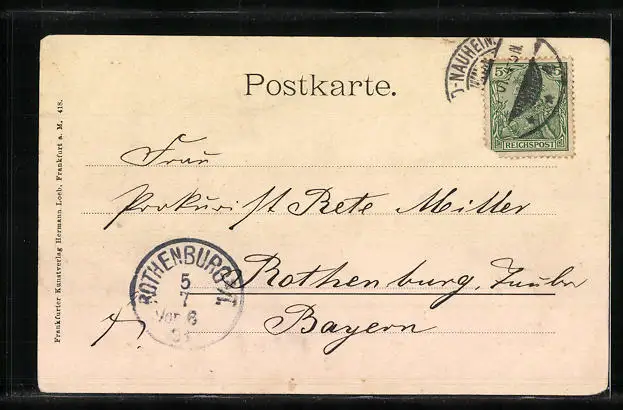 Postkarte.
D-NAUHEIM
5 5
REICHSPOST
Frau
Prokurist Rete Miller
Rothenburg, Tauber
Bayern
ROTHENBURG
5
7
Vor 8
Frankfurter Kunstverlag Hermann Loeb, Frankfurt a. M. 418.